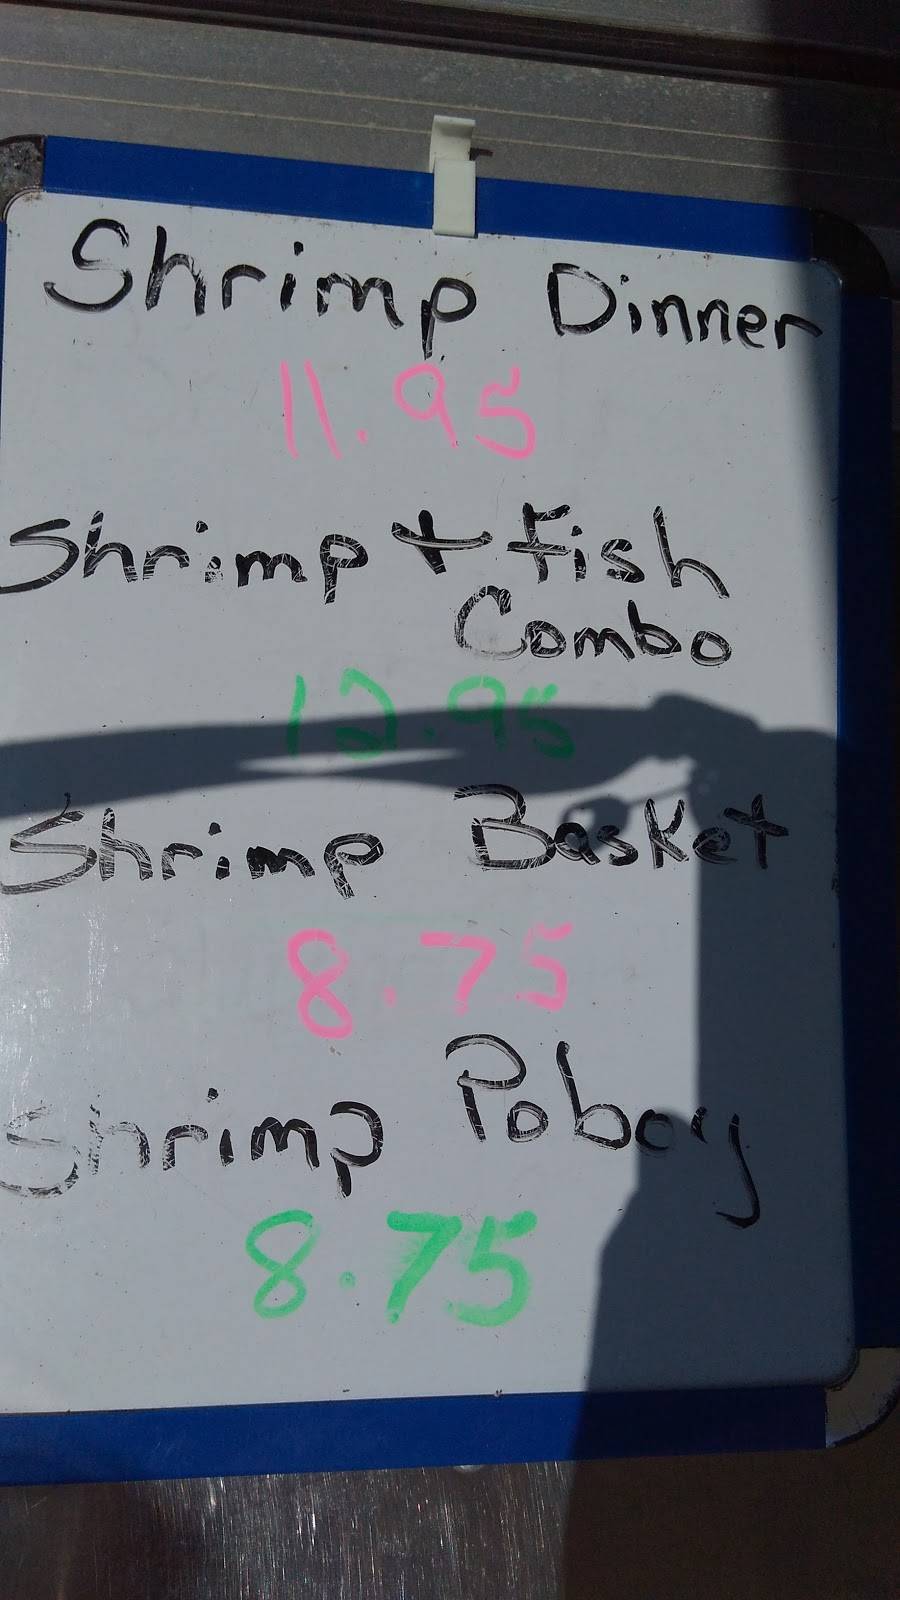 Shrimp Dinner
11.95
Shrimp + Fish
Combo
12.95
Shrimp Basket
8.75
Shrimp Poboy
8.75